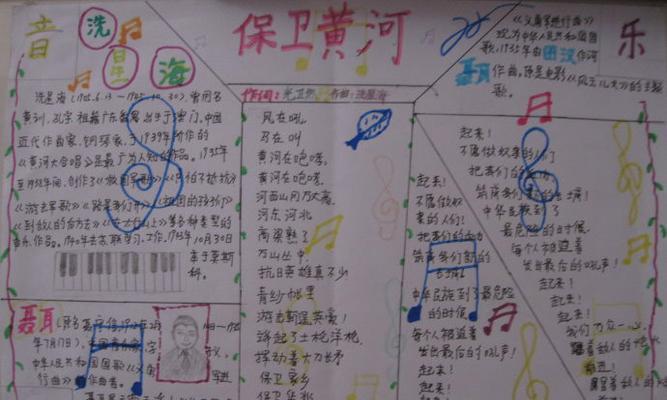 音
乐
洗
星
海
保卫黄河
作词：光卫然 作曲：洗星海
洗星海(1905.6.13—1945.10.30)，曾用名
黄训、孔宇 祖籍广东番禺 出生于澳门，中国
近代作曲家、钢琴家，于1939年创作的
《黄河大合唱》是最广为人知的作品。1935年
至1938年间，创作了《救国军歌》《只怕不抵抗》
《游击军歌》《路是我们开》《祖国的孩子们》
《到敌人的后方去》《在太行山上》等各种类型的
音乐作品。1940年去苏联学习、工作，1945年10月30日
卒于莫斯
科。
聂耳
年7月17日)，
中华人民共和国国歌《义
行曲》 作曲者。
风在吼，
马在叫
黄河在咆哮，
黄河在咆哮，
河西山冈万丈高，
河东 河北
高粱熟了
万山丛中，
抗日英雄真不少
青纱帐里
游击健逞英豪！
端起了土枪洋枪，
挥动着大刀长矛
保卫家乡
保卫华北
《义勇军进行曲》
现为中华人民共和国国
歌，1935年由田汉作词
聂耳作曲，原是电影《风云儿女》的主题
歌。
起来！
不愿做奴
隶的人们！
把我们的血肉
筑成我们新的
长城！
中华民族到了最危险
的时候
每个人被迫着
发出最后的吼声！
起来！
起来！
起来！
不愿做奴隶的人们
把我们的
筑成我们新的长城！
中华民族到了
最危险的时候，
每个人被迫着
发出最后的吼声！
起来！
起来！
起来！
我们万众一心，
冒着敌人的炮火
前进！
冒着敌人的